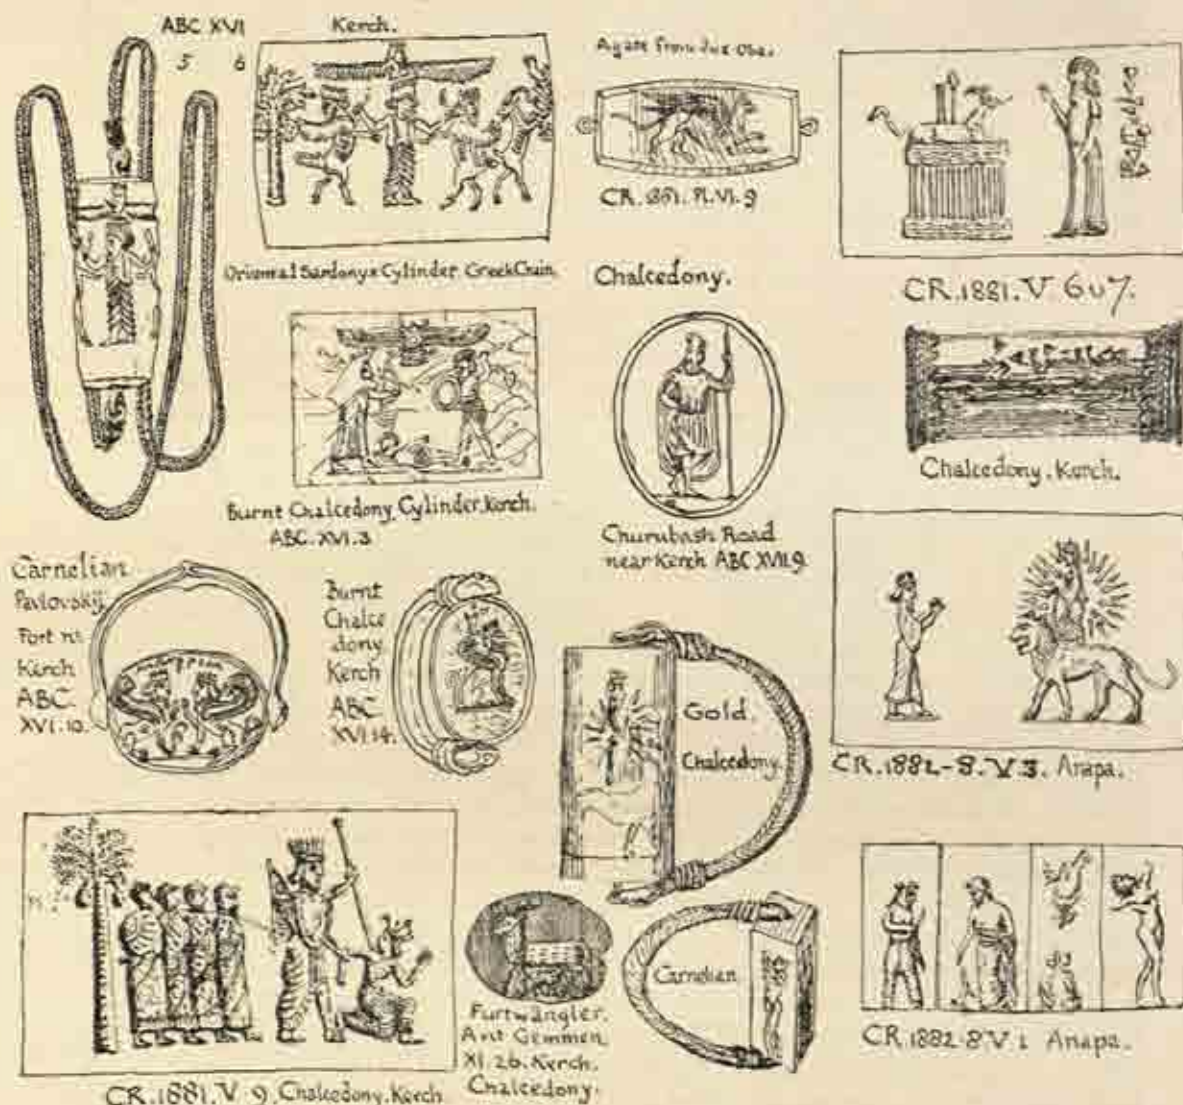 ABC XVI
5 6
Kerch.
Oriental Sardonyx Cylinder. Greek Chain.
Agate from Juz Oba.
CR. 1861. Pl. VI. 9
CR. 1881. V. 6 u 7.
Chalcedony. Kerch.
Burnt Chalcedony Cylinder. Kerch.
ABC. XVI. 3
Chalcedony.
Churubash Road
near Kerch ABC XVII. 9
Carnelian
Pavlovskij
Fort nr.
Kerch
ABC.
XVI. 10.
Burnt
Chalce
dony
Kerch
ABC
XVI. 14.
Gold.
Chalcedony.
CR. 1882-8. V. 3. Anapa.
CR. 1881. V. 9. Chalcedony. Kerch
Furtwängler.
Ant Gemmen.
XI. 26. Kerch.
Chalcedony.
Carnelian
CR 1882-8. V. 1 Anapa.